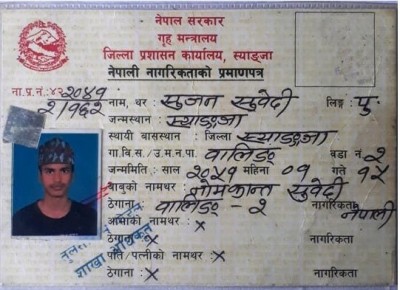 नेपाल सरकार
गृह मन्त्रालय
जिल्ला प्रशासन कार्यालय, स्याङ्जा
नेपाली नागरिकताको प्रमाणपत्र
ना.प्र.नं.:
नाम, थर : सुजन सुवेदी लिङ्ग : पु.
जन्मस्थान : स्याङ्जा
स्थायी बासस्थान : जिल्ला स्याङ्जा
गा.वि.स./उ.म.न.पा. वालिङ वडा नं २
जन्ममिति : साल २०५१ महिना ०१ गते १५
बाबुको नामथर : सुवेदी
ठेगाना : वालिङ - २ नागरिकता नेपाली
आमाको नामथर : x
ठेगाना : x नागरिकता
पति/पत्नीको नामथर : x
ठेगाना : x नागरिकता
शाखा अधिकृत